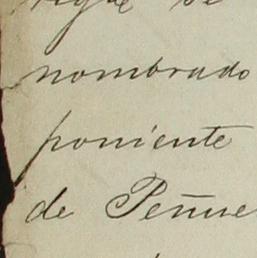 nombrado
poniente
de Peñue